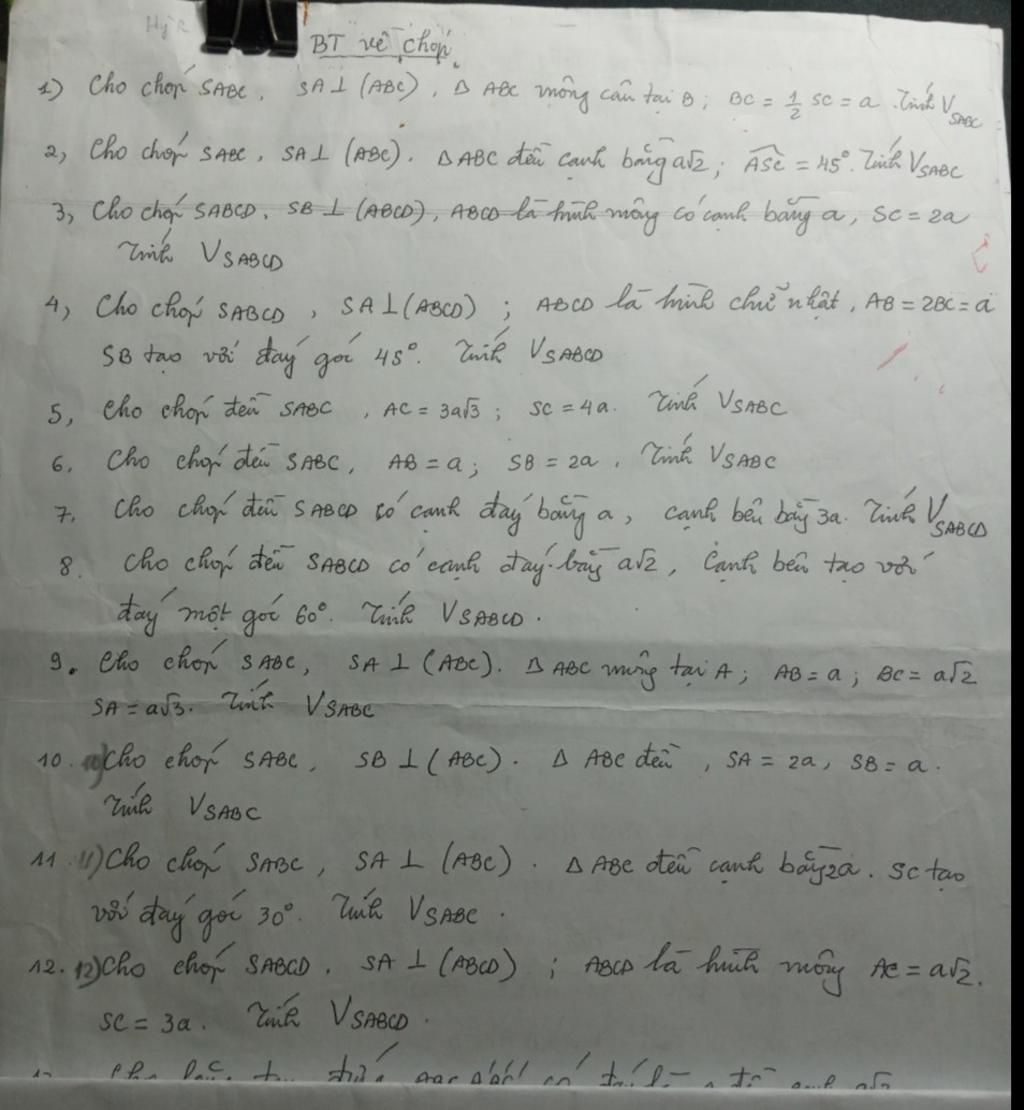 BT về chóp.
1) Cho chóp SABC, SA ⊥ (ABC), Δ ABC vuông cân tại B; BC = 1/2 SC = a. Tính V_SABC
2, Cho chóp SABC, SA ⊥ (ABC). Δ ABC đều cạnh bằng a√2; ASC = 45°. Tính V_SABC
3, Cho chóp SABCD, SB ⊥ (ABCD), ABCD là hình vuông có cạnh bằng a, SC = 2a
Tính V_SABCD
4, Cho chóp SABCD, SA ⊥ (ABCD); ABCD là hình chữ nhật, AB = 2BC = a
SB tạo với đáy góc 45°. Tính V_SABCD
5, Cho chóp đều SABC, AC = 3a√3; SC = 4a. Tính V_SABC
6. Cho chóp đều SABC, AB = a; SB = 2a. Tính V_SABC
7. Cho chóp đều SABCD có cạnh đáy bằng a, cạnh bên bằng 3a. Tính V_SABCD
8. Cho chóp đều SABCD có cạnh đáy bằng a√2, Cạnh bên tạo với
đáy một góc 60°. Tính V_SABCD.
9. Cho chóp SABC, SA ⊥ (ABC). Δ ABC vuông tại A; AB = a; BC = a√2
SA = a√3. Tính V_SABC
10. Cho chóp SABC, SB ⊥ (ABC). Δ ABC đều, SA = 2a, SB = a.
Tính V_SABC
11. 11) Cho chóp SABC, SA ⊥ (ABC). Δ ABC đều cạnh bằng 2a. SC tạo
với đáy góc 30°. Tính V_SABC.
12. 12) Cho chóp SABCD. SA ⊥ (ABCD); ABCD là hình vuông AC = a√2.
SC = 3a. Tính V_SABCD.